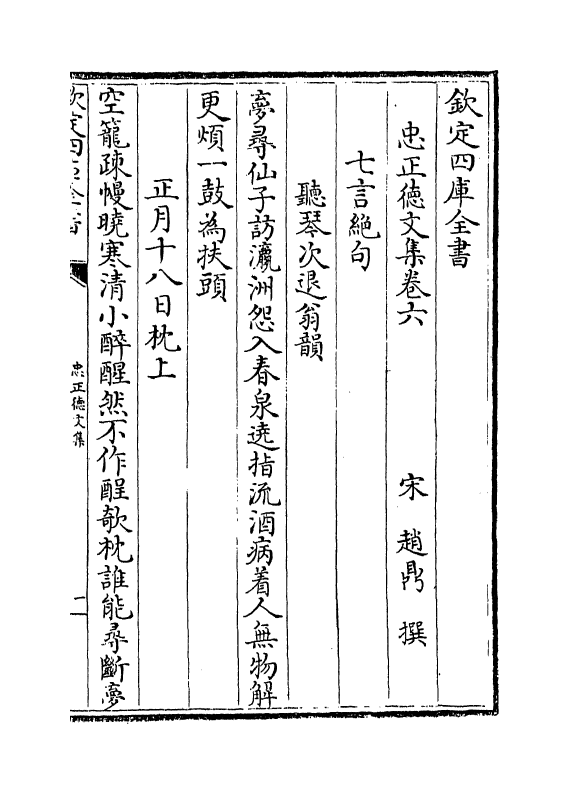 欽定四庫全書
忠正德文集卷六
宋 趙鼎 撰
七言絶句
聽琴次退翁韻
夢尋仙子訪瀛洲怨入春泉遶指流酒病着人無物解
更煩一鼓為扶頭
正月十八日枕上
空籠疎幔曉寒清小醉醒然不作酲欹枕誰能尋斷夢
欽定四庫全書
忠正德文集